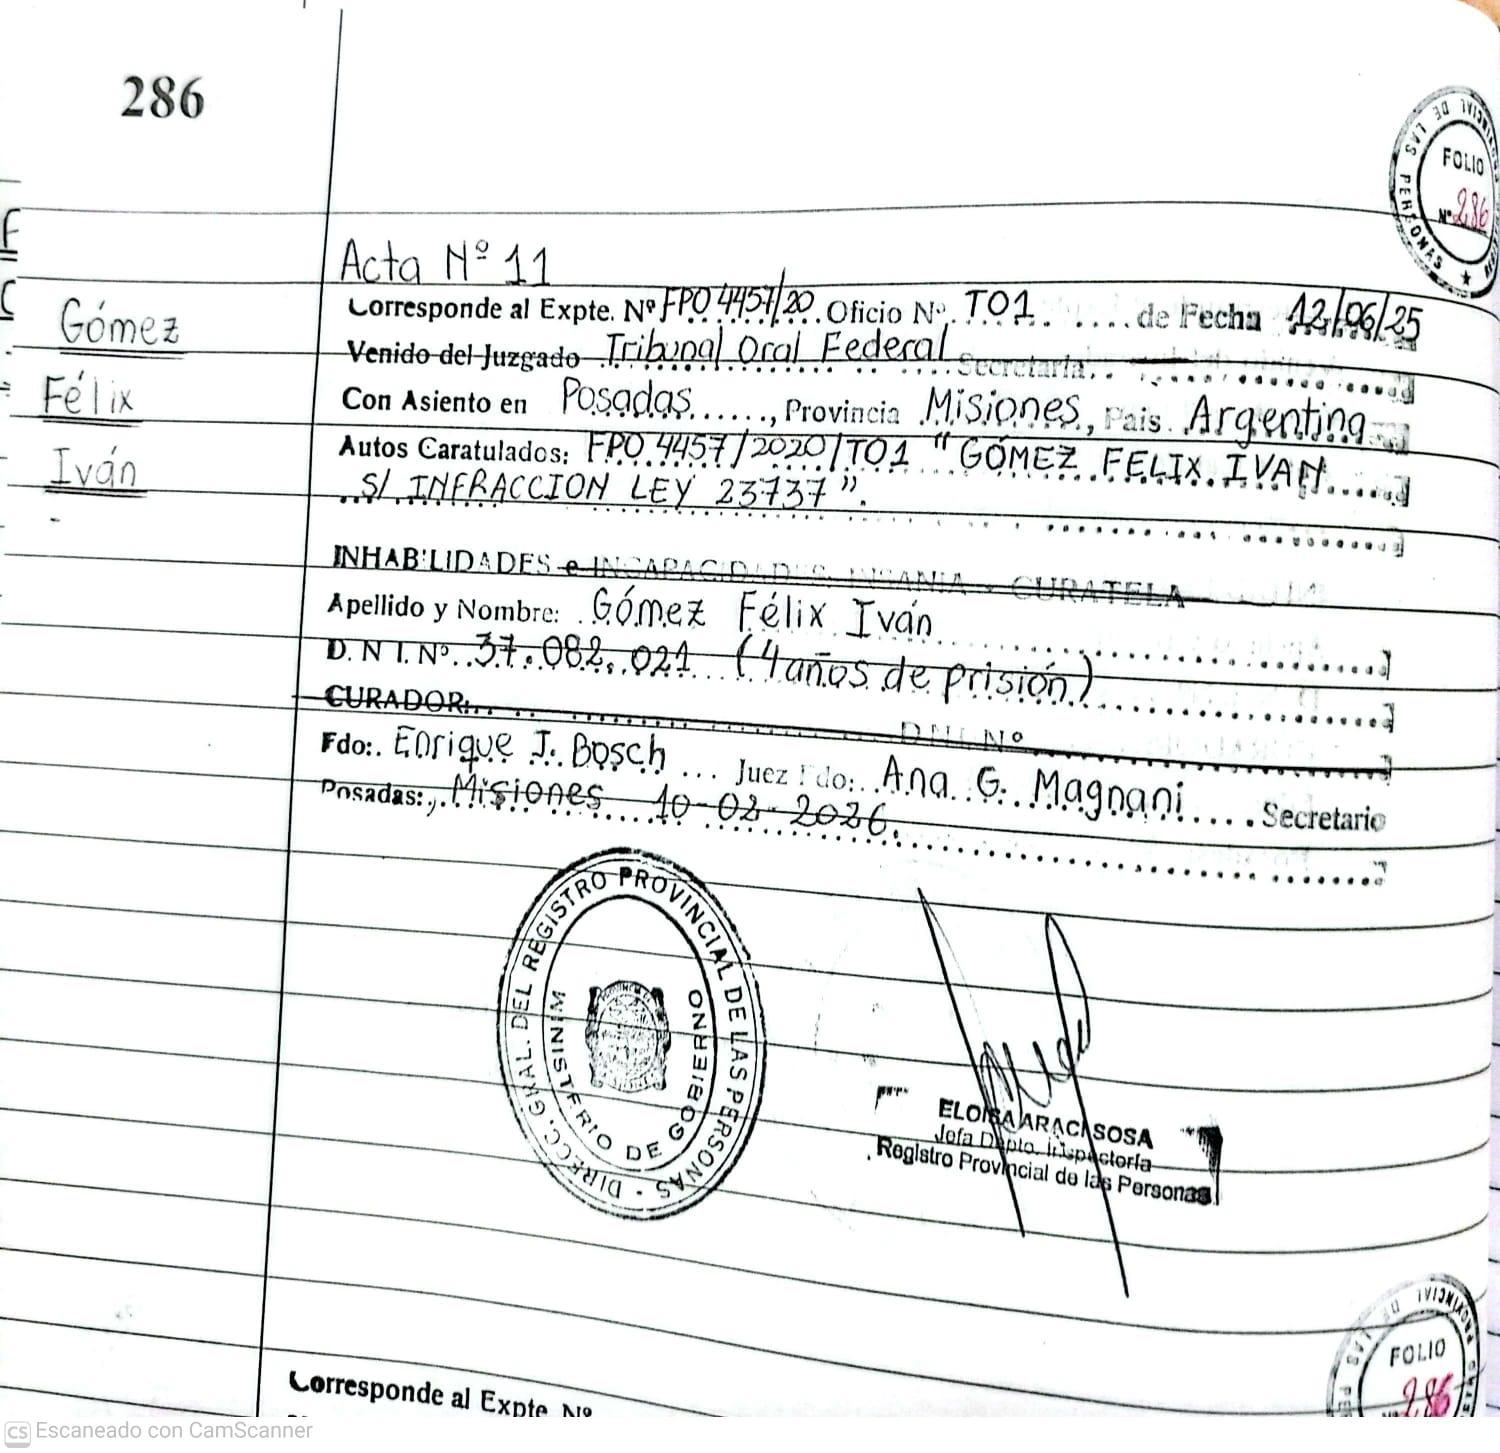 286
PROVINCIAL DE LAS PERSONAS
FOLIO
Nº 286
Gómez
Félix
Iván
Acta Nº 11
Corresponde al Expte. Nº FPO 4457/20 Oficio Nº TO1 de Fecha 12/06/25
Venido del Juzgado Tribunal Oral Federal Secretaría
Con Asiento en Posadas, Provincia Misiones, País Argentina
Autos Caratulados: FPO 4457/2020/TO1 "GÓMEZ FELIX IVAN
S/ INFRACCION LEY 23737".
INHABILIDADES e INCAPACIDADES. INSANIA - CURATELA
Apellido y Nombre: Gómez Félix Iván
D. N I. Nº 37.082.021 (4 años de prisión)
CURADOR: DNI Nº
Fdo: Enrique J. Bosch Juez Fdo: Ana G. Magnani Secretario
Posadas: Misiones 10-02-2026.
DIRECC. GRAL. DEL REGISTRO PROVINCIAL DE LAS PERSONAS
MINISTERIO DE GOBIERNO
ELOISA ARACI SOSA
Jefa Dpto. Inspectoría
Registro Provincial de las Personas
Corresponde al Expte Nº
PROVINCIAL DE LAS
FOLIO
286
CS Escaneado con CamScanner